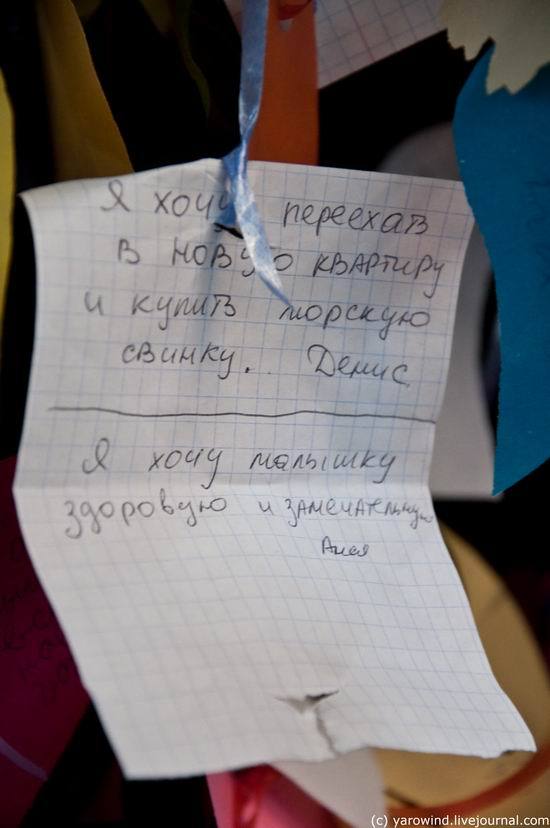 Я хочу переехать
в новую квартиру
и купить морскую
свинку. Денис
Я хочу малышку
здоровую и замечательную
Аня
(c) yarowind.livejournal.com